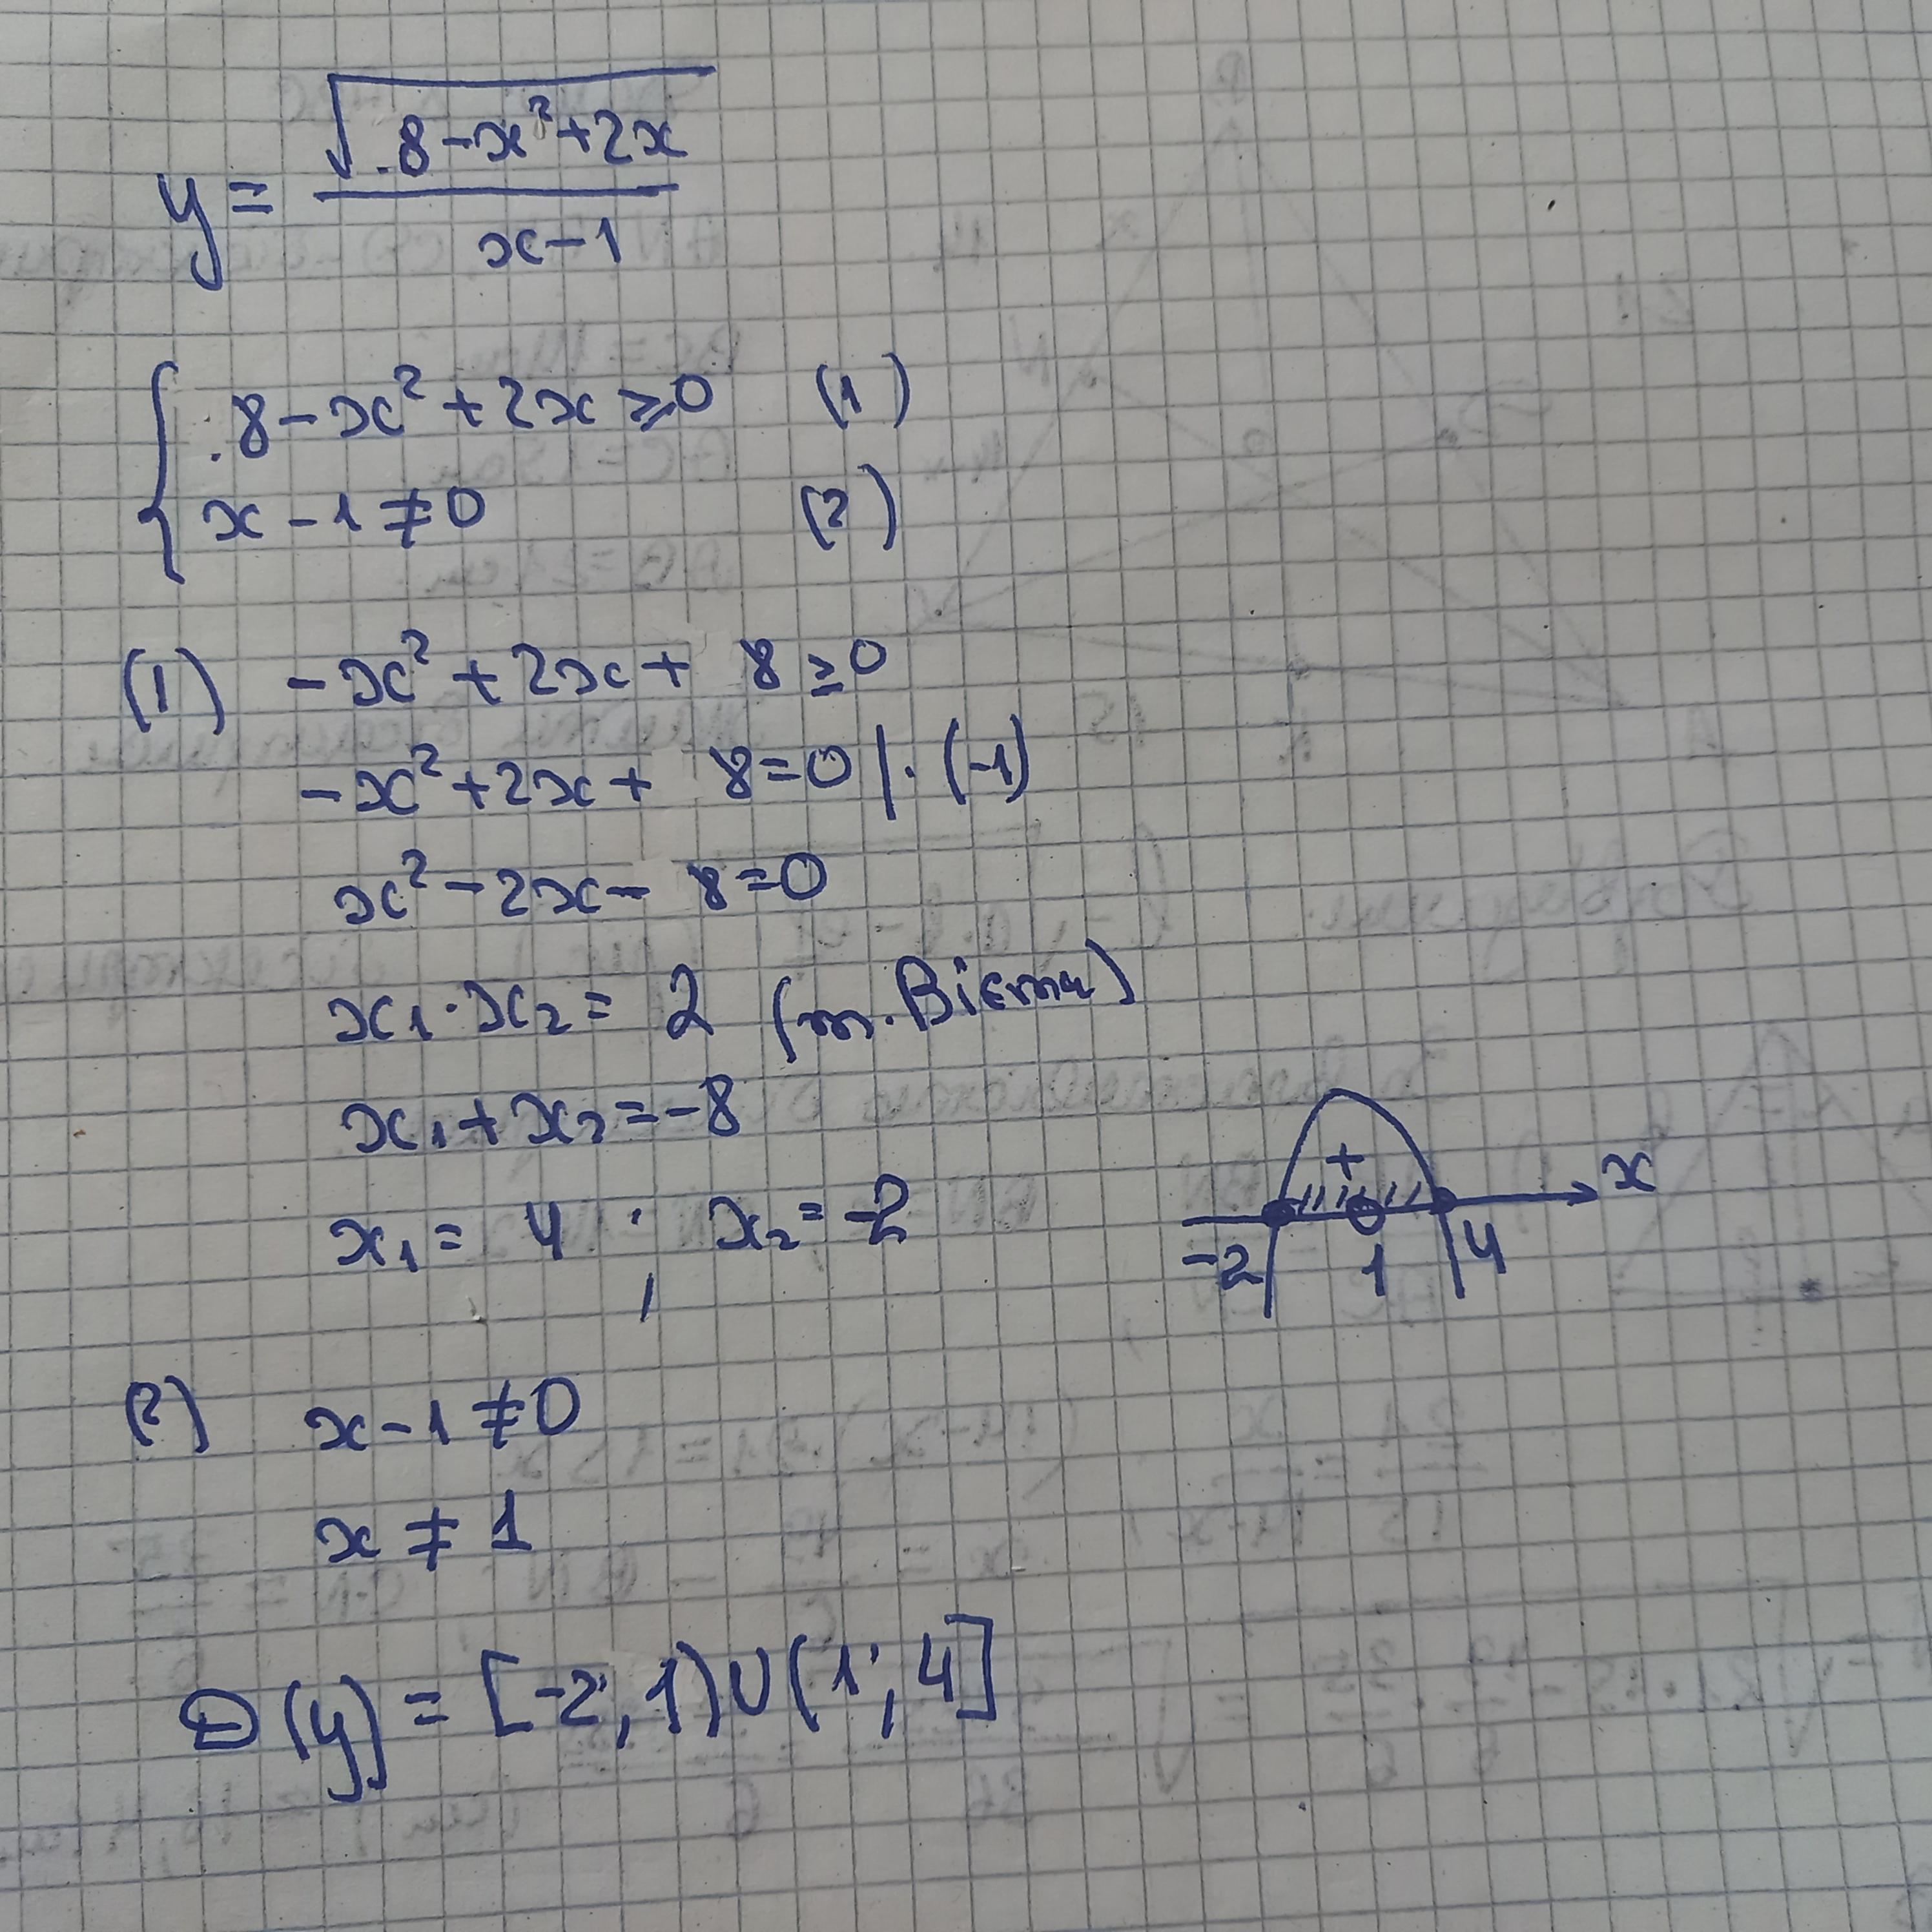 y = √(8-x²+2x) / (x-1)
{ 8-x²+2x ≥ 0 (1)
x-1 ≠ 0 (2)
(1) -x²+2x+ 8 ≥ 0
-x²+2x+ 8=0 | · (-1)
x²-2x- 8=0
x₁·x₂= 2 (т. Вієта)
x₁+x₂=-8
x₁= 4 ; x₂=-2
+ x
-2 1 4
(2) x-1 ≠ 0
x ≠ 1
D(y) = [-2; 1)∪(1; 4]